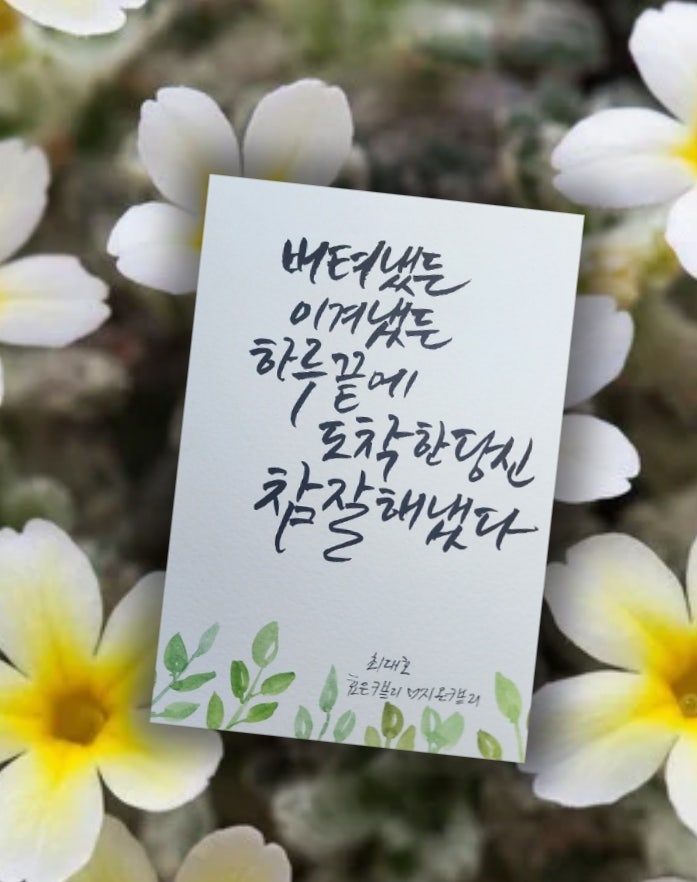 버텨냈든
이겨냈든
하루 끝에
도착한 당신
참 잘 해냈다
최대호